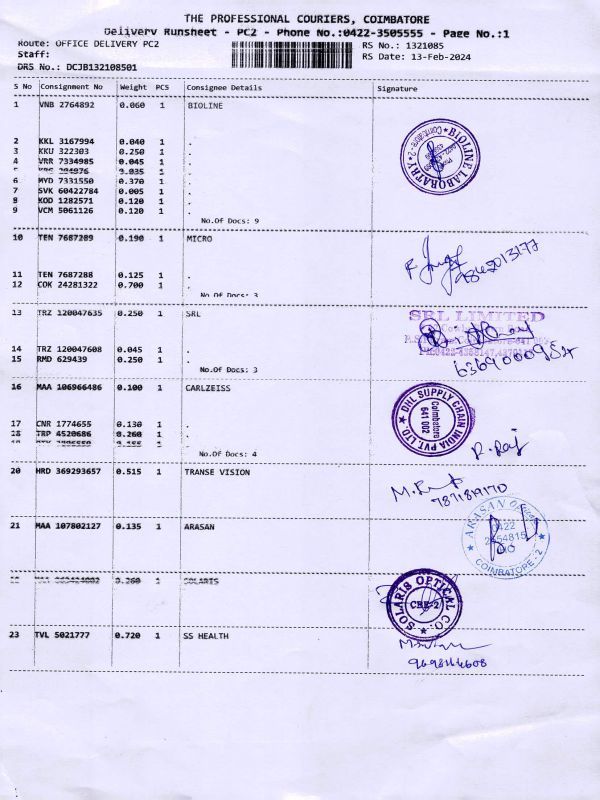 THE PROFESSIONAL COURIERS, COIMBATORE
Delivery Runsheet - PC2 - Phone No.:0422-3505555 - Page No.:1
Route: OFFICE DELIVERY PC2 RS No.: 1321085
Staff: RS Date: 13-Feb-2024
DRS No.: DCJB132108501
S No Consignment No Weight PCS Consignee Details Signature
1 VNB 2764892 0.060 1 BIOLINE
BIOLINE LABORATRY
2 KKL 3167994 0.040 1 .
3 KKU 322303 0.250 1 .
4 VRR 7334985 0.045 1 .
0.035 1 .
6 MYD 7331550 0.370 1 .
7 SVK 60422784 0.005 1 .
8 KOD 1282571 0.120 1 .
9 VCM 5061126 0.120 1 .
No.Of Docs: 9
10 TEN 7687289 0.190 1 MICRO
11 TEN 7687288 0.125 1 .
12 COK 24281322 0.700 1 .
No.Of Docs: 3
13 TRZ 120047635 0.250 1 SRL
SRL LIMITED
14 TRZ 120047608 0.045 1 .
15 RMD 629439 0.250 1 .
No.Of Docs: 3
16 MAA 106966486 0.100 1 CARLZEISS
DHL SUPPLY CHAIN INDIA PVT.LTD.
Coimbatore
641 002
17 CNR 1774655 0.130 1 .
18 TRP 4520686 0.260 1 .
No.Of Docs: 4
R. Raj
20 HRD 369293657 0.515 1 TRANSE VISION
21 MAA 107802127 0.135 1 ARASAN
ARASAN
COIMBATORE-2
0.260 1 SOLARIS
SOLARIS OPTICAL CO.
CBE-2
23 TVL 5021777 0.720 1 SS HEALTH